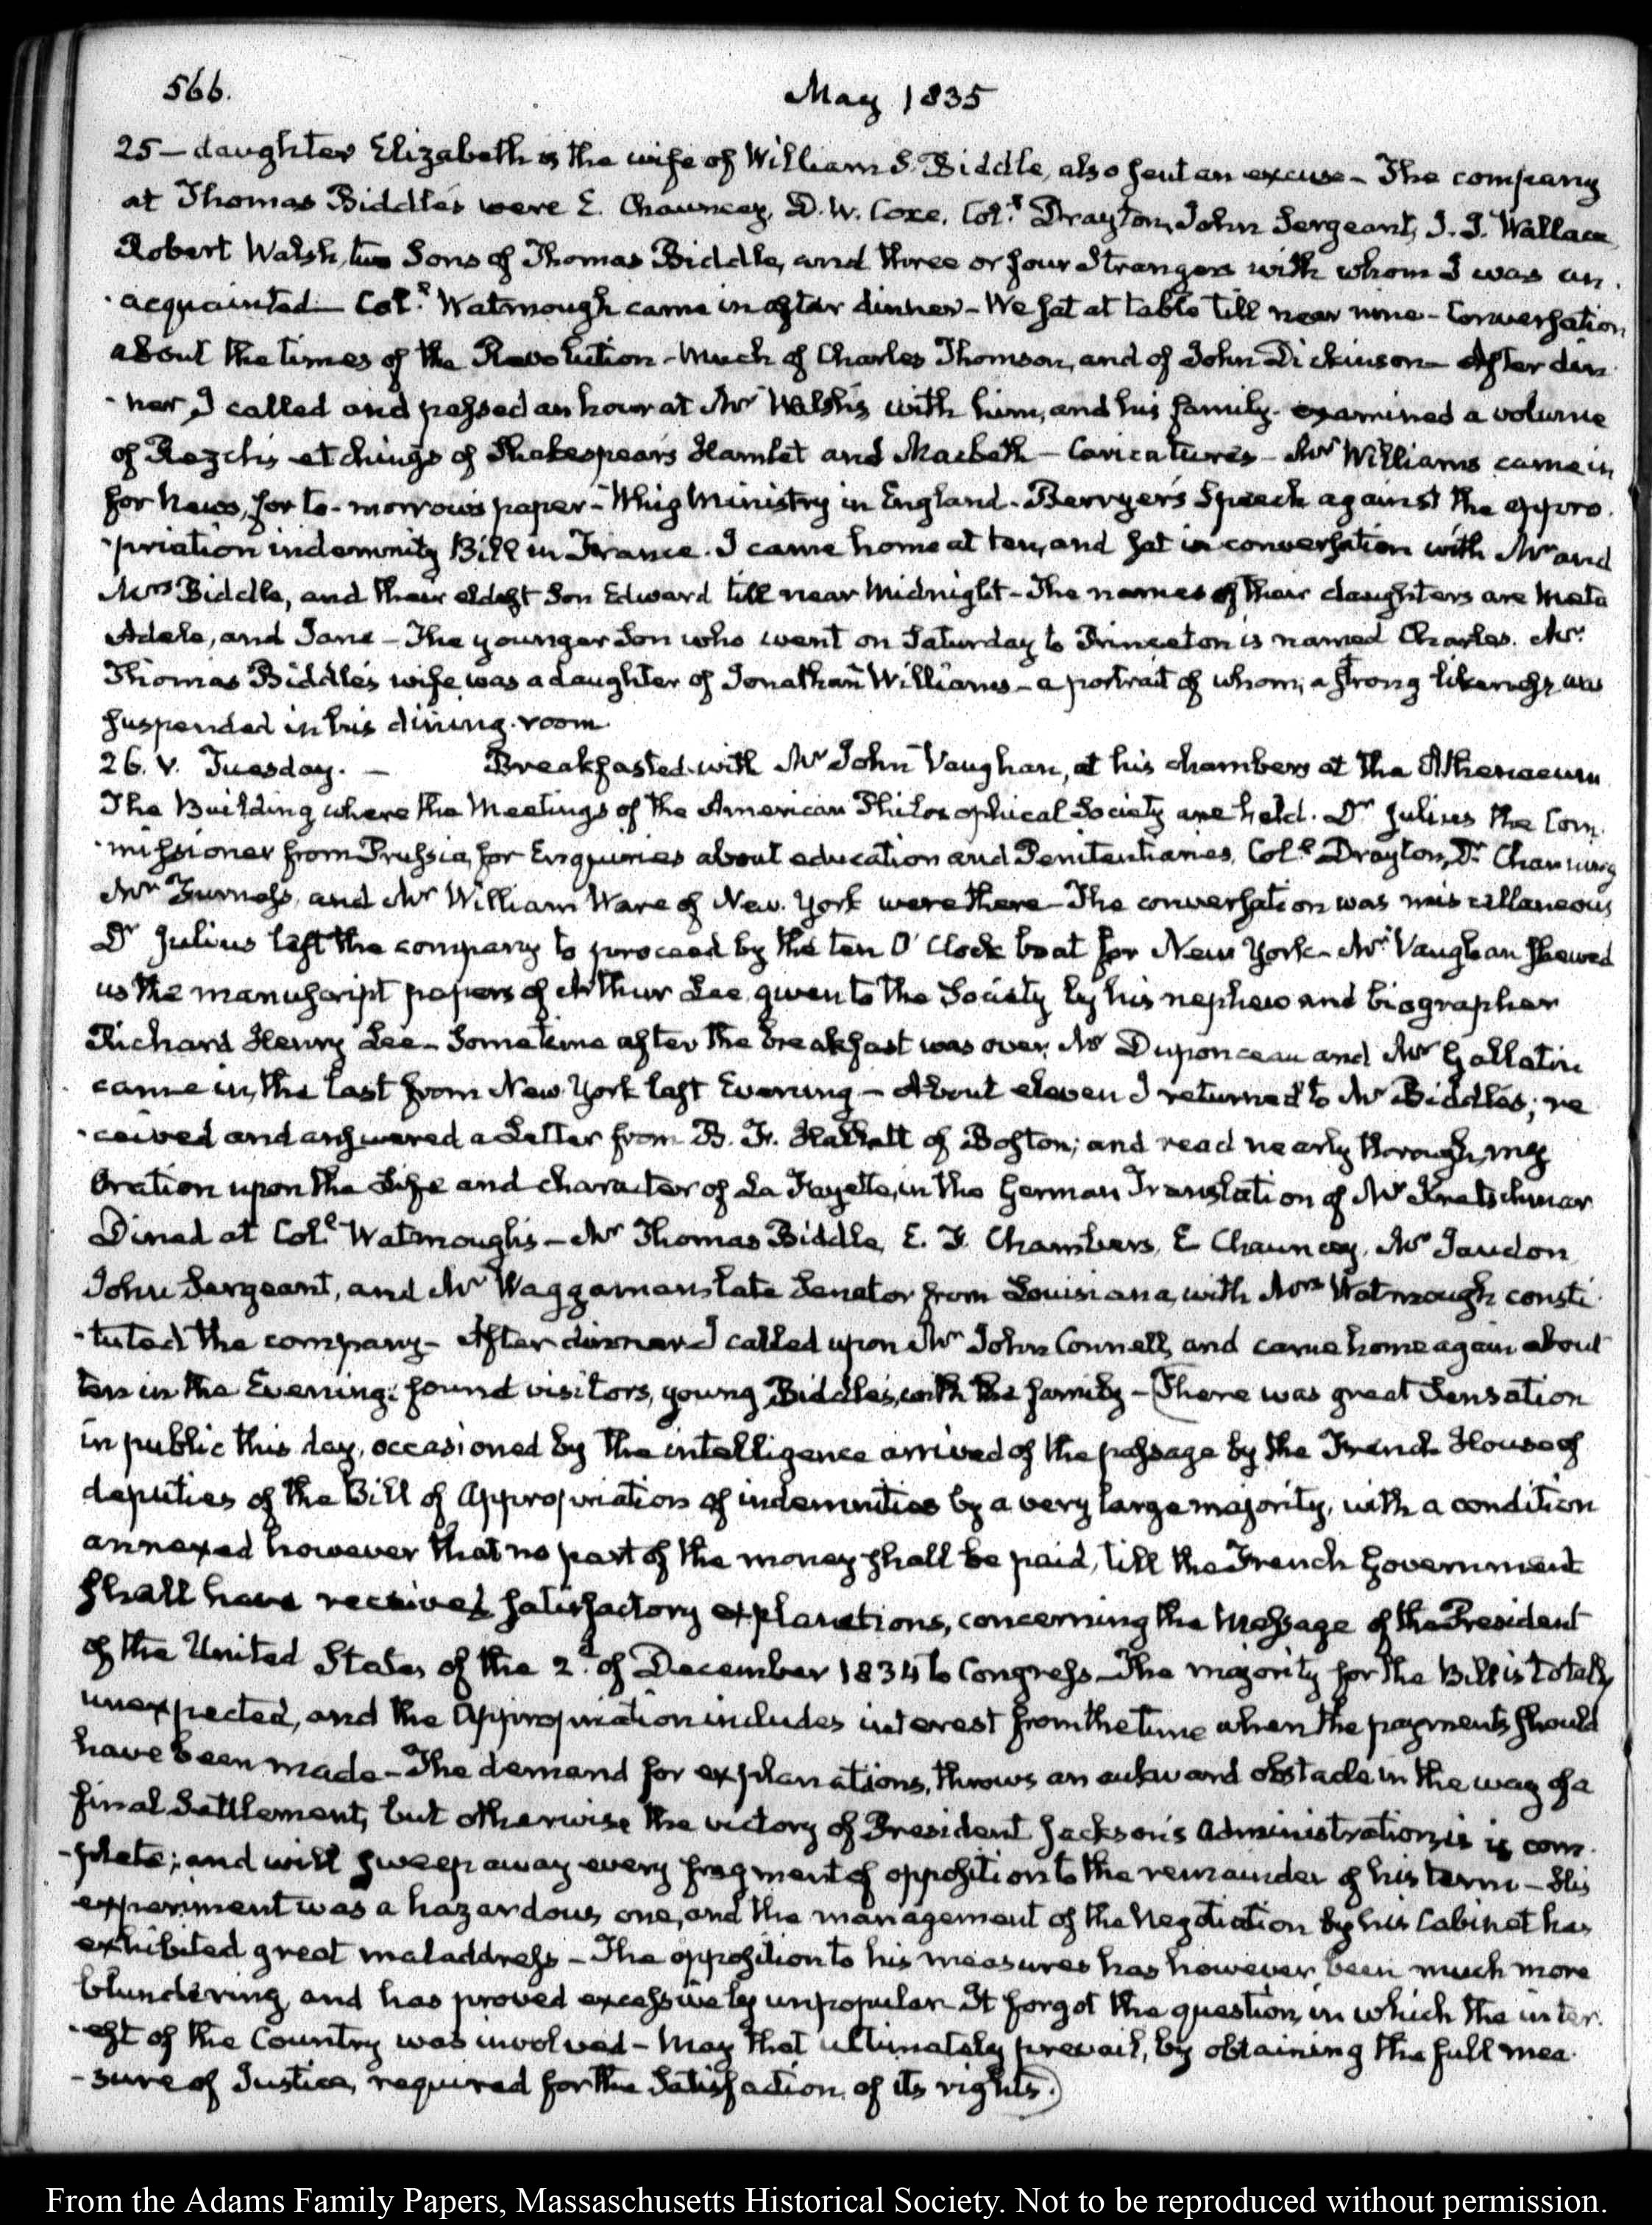 566.
May 1835
25 — daughter Elizabeth is the wife of William S. Biddle, also sent an excuse — The company
at Thomas Biddle's were E. Chauncey, D. W. Coxe, Col.l Drayton, John Sergeant, J. J. Wallace,
Robert Walsh, two Sons of Thomas Biddle, and three or four Strangers with whom I was un-
-acquainted — Col.l Watmough came in after dinner — We sat at table till near nine — Conversation
about the times of the Revolution — Much of Charles Thomson, and of John Dickinson — After din-
-ner, I called and passed an hour at Mr Walsh's with him, and his family. examined a volume
of Rezch's etchings of Shakespear's Hamlet and Macbeth — Caricatures — Mr Williams came in
for News, for to-morrow's paper — Whig Ministry in England — Berryer's Speech against the appro-
-priation indemnity Bill in France. I came home at ten, and sat in conversation with Mr and
Mrs Biddle, and their eldest Son Edward till near Midnight — The names of their daughters are Meta
Adele, and Jane — The younger Son who went on Saturday to Princeton is named Charles. Mr
Thomas Biddle's wife was a daughter of Jonathan Williams — a portrait of whom, a strong likeness was
suspended in his dining-room.
26. V. Tuesday. — Breakfasted with Mr John Vaughan, at his chambers at the Athenaeum
The Building where the Meetings of the American Philosophical Society are held. Dr Julius the Com-
-missioner from Prussia, for Enquiries about education and Penitentiaries, Col.l Drayton, Dr Channing
Mr Furness, and Mr William Ware of New-York were there — The conversation was miscellaneous
Dr Julius left the company to proceed by the ten O'Clock boat for New York — Mr Vaughan shewed
us the manuscript papers of Arthur Lee, given to the Society by his nephew and biographer
Richard Henry Lee — Sometime after the breakfast was over, Mr Duponceau and Mr Gallatin
came in, the last from New York last Evening — About eleven I returned to Mr Biddle's; re-
-ceived and answered a Letter from B. F. Hallett of Boston; and read nearly through, my
Oration upon the Life and character of La Fayette, in the German Translation of Mr Kretschmar
Dined at Col.l Watmough's — Mr Thomas Biddle, E. F. Chambers, E Chauncey, Mr Jaudon
John Sergeant, and Mr Waggaman late Senator from Louisiana, with Mrs Watmough consti-
-tuted the company — After dinner I called upon Mr John Connell, and came home again about
ten in the Evening: found visitors, young Biddle's, with the family — (There was great Sensation
in public this day, occasioned by the intelligence arrived of the passage by the French House of
deputies of the Bill of Appropriation of indemnities by a very large majority, with a condition
annexed however that no part of the money shall be paid, till the French Government
shall have received satisfactory explanations, concerning the Message of the President
of the United States of the 2.d of December 1834 to Congress — The majority for the Bill is totally
unexpected, and the Appropriation includes interest from the time when the payments should
have been made — The demand for explanations, throws an aukward obstacle in the way of a
final Settlement, but otherwise the victory of President Jackson's Administration, is is com-
-plete; and will sweep away every fragment of opposition to the remainder of his term — His
experiment was a hazardous one, and the management of the Negotiation by his Cabinet has
exhibited great maladdress — The opposition to his measures has however, been much more
blundering, and has proved excessively unpopular — It forgot the question, in which the inter-
-est of the Country was involved — May that ultimately prevail, by obtaining the full mea-
-sure of Justice, required for the Satisfaction of its rights.)
From the Adams Family Papers, Massaschusetts Historical Society. Not to be reproduced without permission.